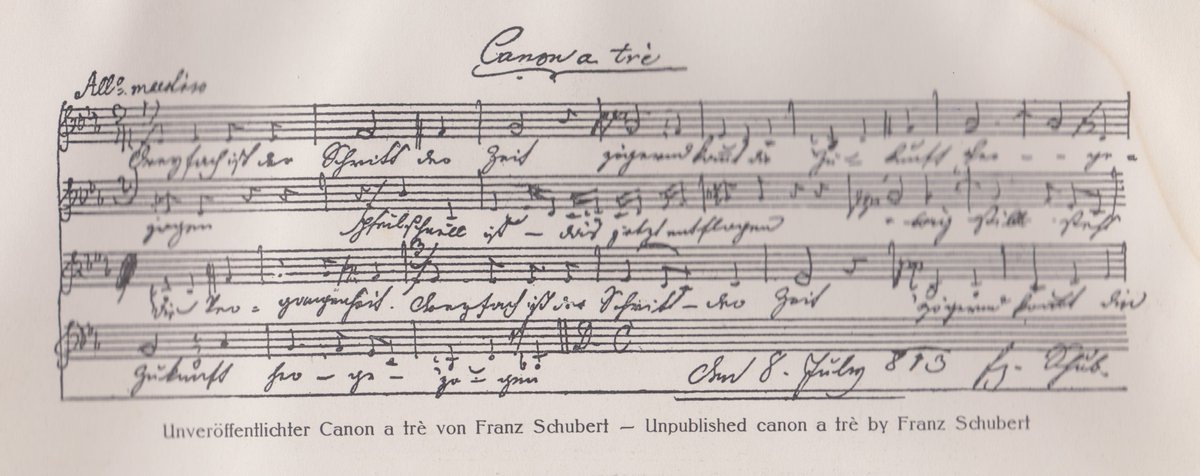 Canon a trè
All.º maestoso
Dreyfach ist der Schritt der Zeit zögernd kom̄t die Zu - kunft her - - ge -
zogen Pfeilschnell ist - das jetzt entflogen - ewig still steht
die Ver = gangenheit. Dreyfach ist der Schritt - der Zeit zögernd kom̄t die
Zukunft her - ge - zo - gen D. C.
den 8. July 813 Fz. Schub.
Unveröffentlichter Canon a trè von Franz Schubert — Unpublished canon a trè by Franz Schubert